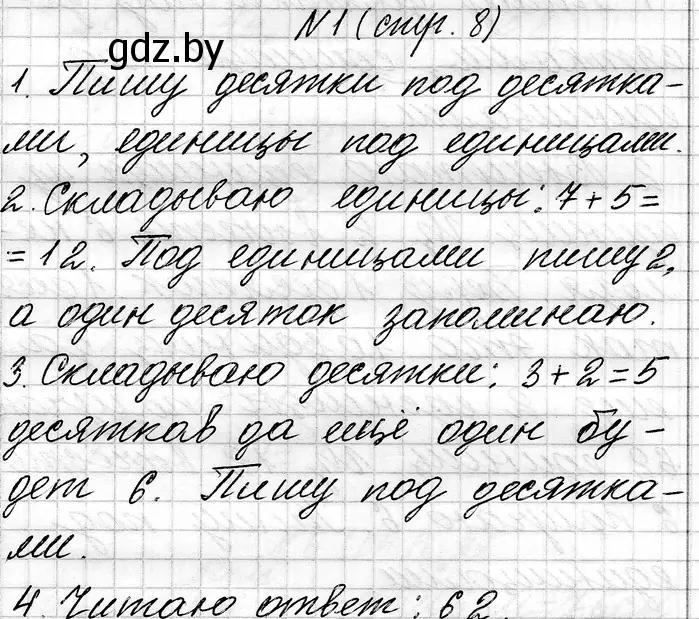 N1 (стр. 8)
gdz.by
1. Пишу десятки под десятка-
ми, единицы под единицами.
2. Складываю единицы: 7+5=
=12. Под единицами пишу 2,
а один десяток запоминаю.
3. Складываю десятки: 3+2=5
десяткав да ещё один бу-
дет 6. Пишу под десятка-
ми.
4. Читаю ответ: 62.